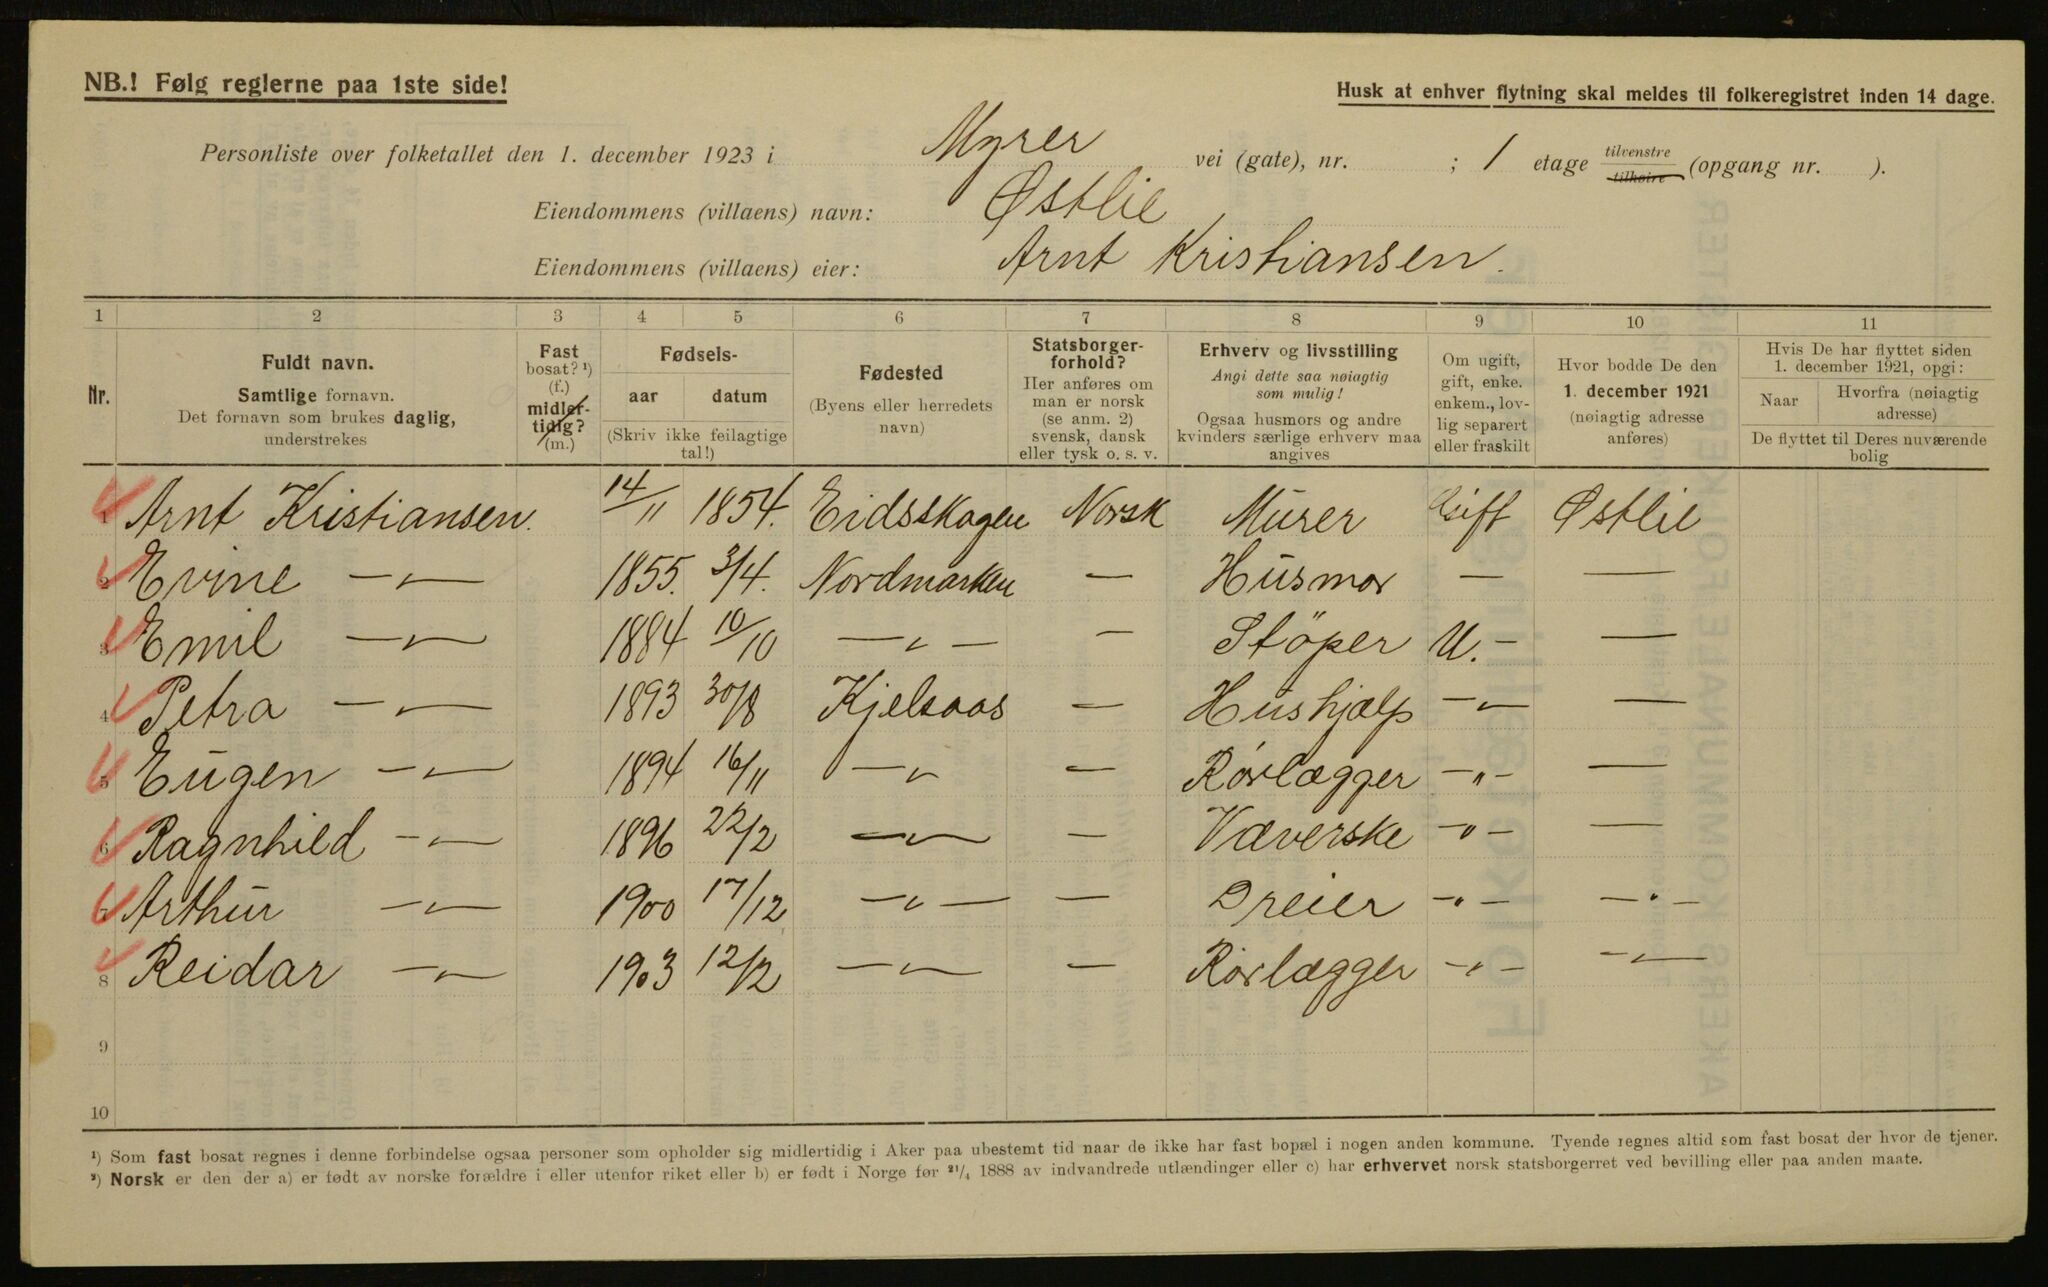 NB.! Følg reglerne paa 1ste side!
Husk at enhver flytning skal meldes til folkeregistret inden 14 dage.
Personliste over folketallet den 1. december 1923 i Myrer vei (gate), nr. ; 1 etage tilvenstre tilhøire (opgang nr. ).
Eiendommens (villaens) navn: Østlie
Eiendommens (villaens) eier: Arnt Kristiansen.
1 2 3 4 5 6 7 8 9 10 11
Nr.
Fuldt navn.
Samtlige fornavn.
Det fornavn som brukes daglig,
understrekes
Fast
bosat? ¹)
(f.)
midler-
tidig?
(m.)
Fødsels-
aar datum
(Skriv ikke feilagtige
tal!)
Fødested
(Byens eller herredets
navn)
Statsborger-
forhold?
Her anføres om
man er norsk
(se anm. 2)
svensk, dansk
eller tysk o. s. v.
Erhverv og livsstilling
Angi dette saa nøiagtig
som mulig!
Ogsaa husmors og andre
kvinders særlige erhverv maa
angives
Om ugift,
gift, enke.
enkem., lov-
lig separert
eller fraskilt
Hvor bodde De den
1. december 1921
(nøiagtig adresse
anføres)
Hvis De har flyttet siden
1. december 1921, opgi:
Naar Hvorfra (nøiagtig
adresse)
De flyttet til Deres nuværende
bolig
1 Arnt Kristiansen. 14/11 1854. Eidsskogen Norsk Murer Gift Østlie
2 Evine —"— 1855. 3/4. Nordmarken — Husmor — —
3 Emil —"— 1884 10/10 —"— — Støper U. — —
4 Petra —"— 1893 30/8 Kjelsaas — Hushjælp —"— —
5 Eugen —"— 1894 16/11 —"— — Rørlægger —"— —
6 Ragnhild —"— 1896 22/2 —"— — Væverske —"— —
7 Arthur —"— 1900 17/12 —"— — Dreier —"— —"—
8 Reidar —"— 1903 12/2 —"— — Rørlægger —"— —"—
9
10
¹) Som fast bosat regnes i denne forbindelse ogsaa personer som opholder sig midlertidig i Aker paa ubestemt tid naar de ikke har fast bopæl i nogen anden kommune. Tyende regnes altid som fast bosat der hvor de tjener.
²) Norsk er den der a) er født av norske forældre i eller utenfor riket eller b) er født i Norge før ²¹/₄ 1888 av indvandrede utlændinger eller c) har erhvervet norsk statsborgerret ved bevilling eller paa anden maate.